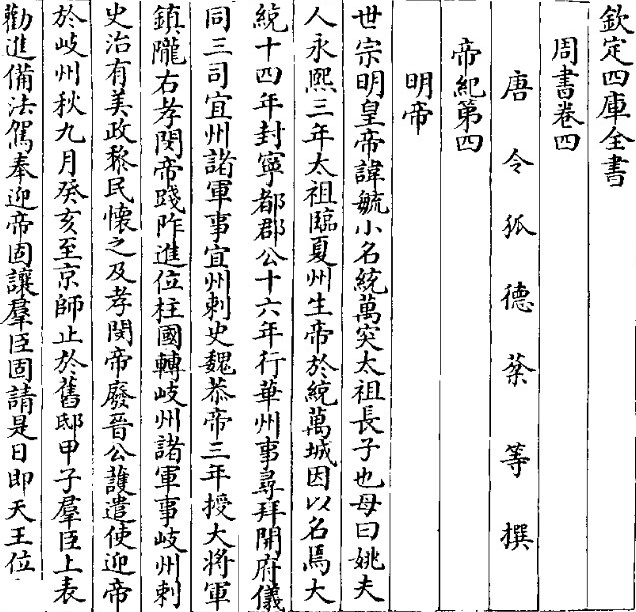 欽定四庫全書
周書卷四
唐令狐德棻等撰
帝紀第四
明帝
世宗明皇帝諱毓小名統萬突太祖長子也母曰姚夫
人永熙三年太祖臨夏州生帝於統萬城因以名焉大
統十四年封寧都郡公十六年行華州事尋拜開府儀
同三司宜州諸軍事宜州刺史魏恭帝三年授大將軍
鎮隴右孝閔帝踐阼進位柱國轉岐州諸軍事岐州刺
史治有美政黎民懷之及孝閔帝廢晉公護遣使迎帝
於岐州秋九月癸亥至京師止於舊邸甲子羣臣上表
勸進備法駕奉迎帝固讓羣臣固請是日即天王位